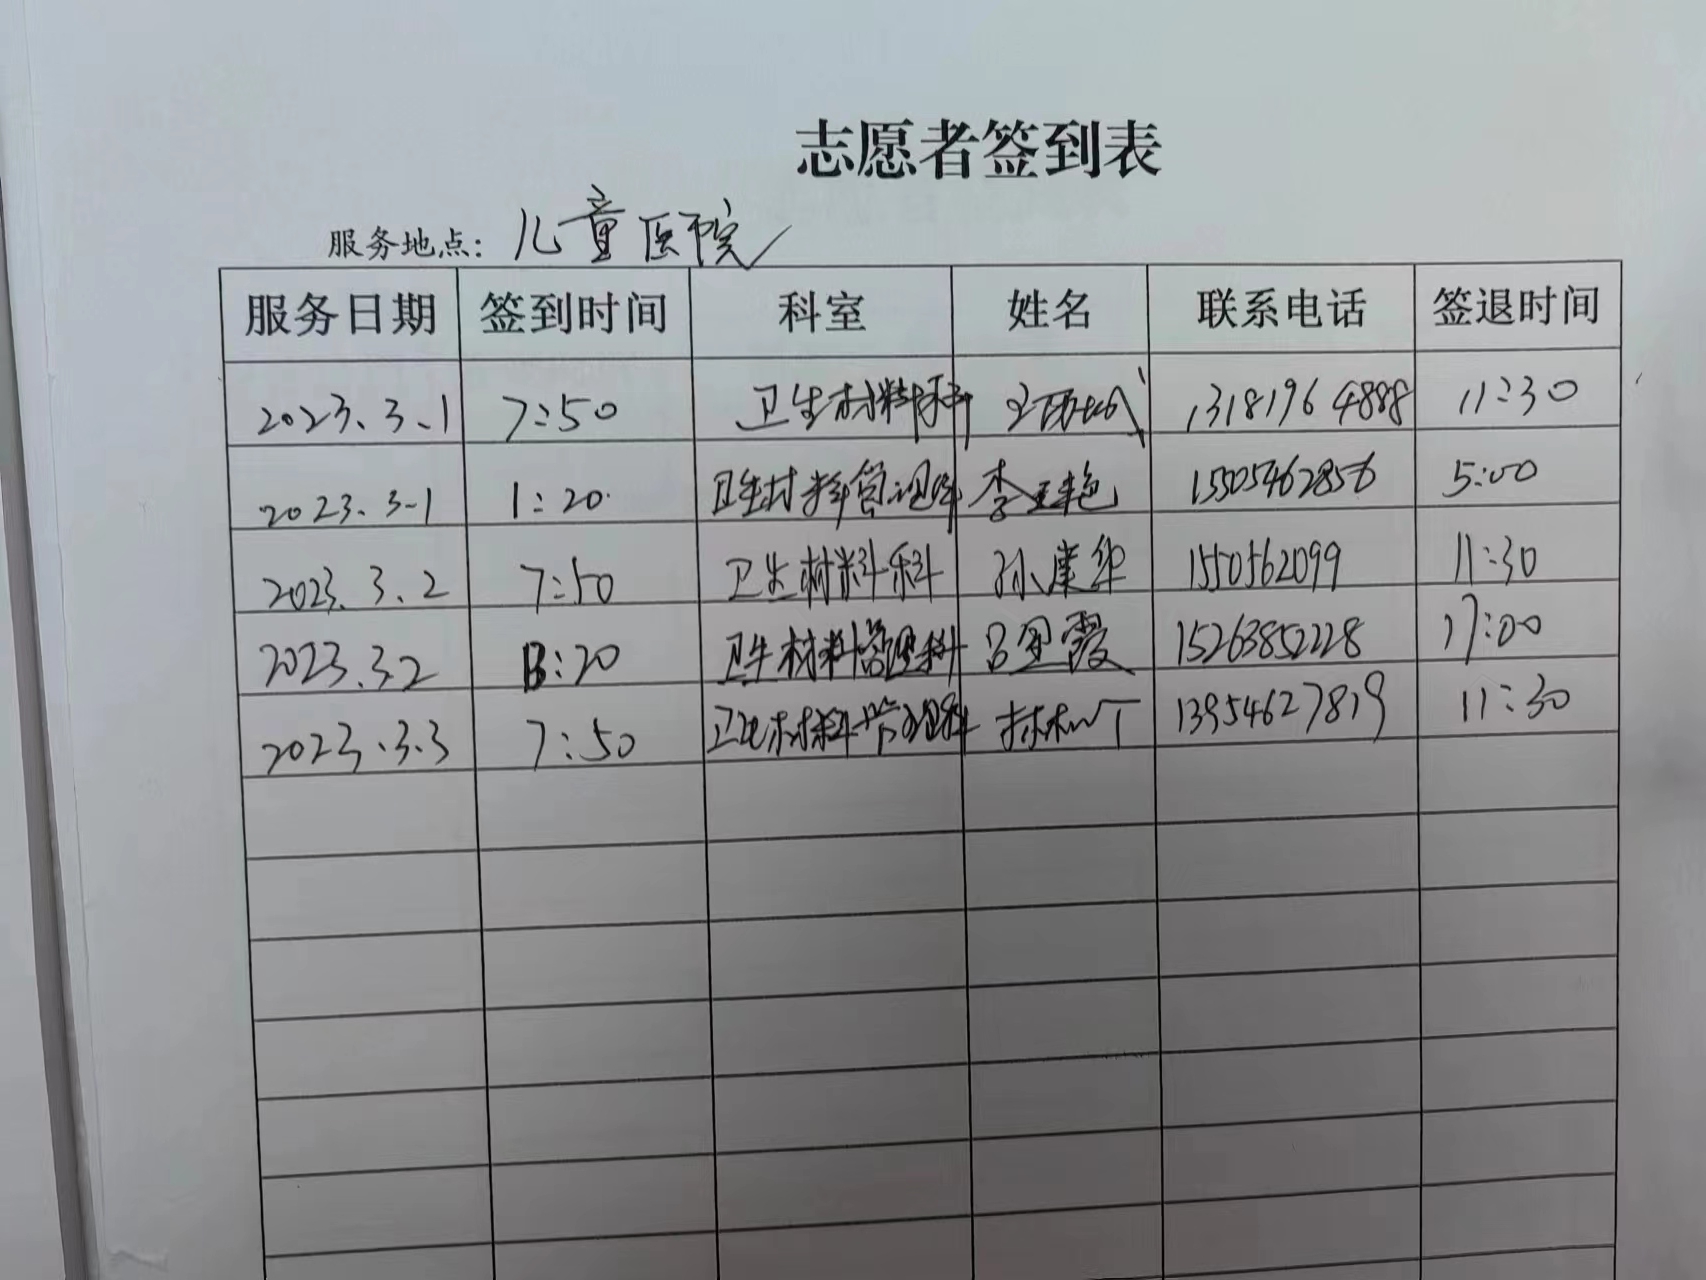 志愿者签到表
服务地点：儿童医院
服务日期 签到时间 科室 姓名 联系电话 签退时间
2023.3.1 7:50 卫生材料科 13181964888 11:30
2023.3-1 1:20 卫生材料管理科 李玉艳 15505462856 5:00
2023.3.2 7:50 卫生材料科 孙建华 1550562099 11:30
2023.3.2 13:20 卫生材料管理科 吕 霞 15263852228 17:00
2023.3.3 7:50 卫生材料管理科 13954627819 11:30